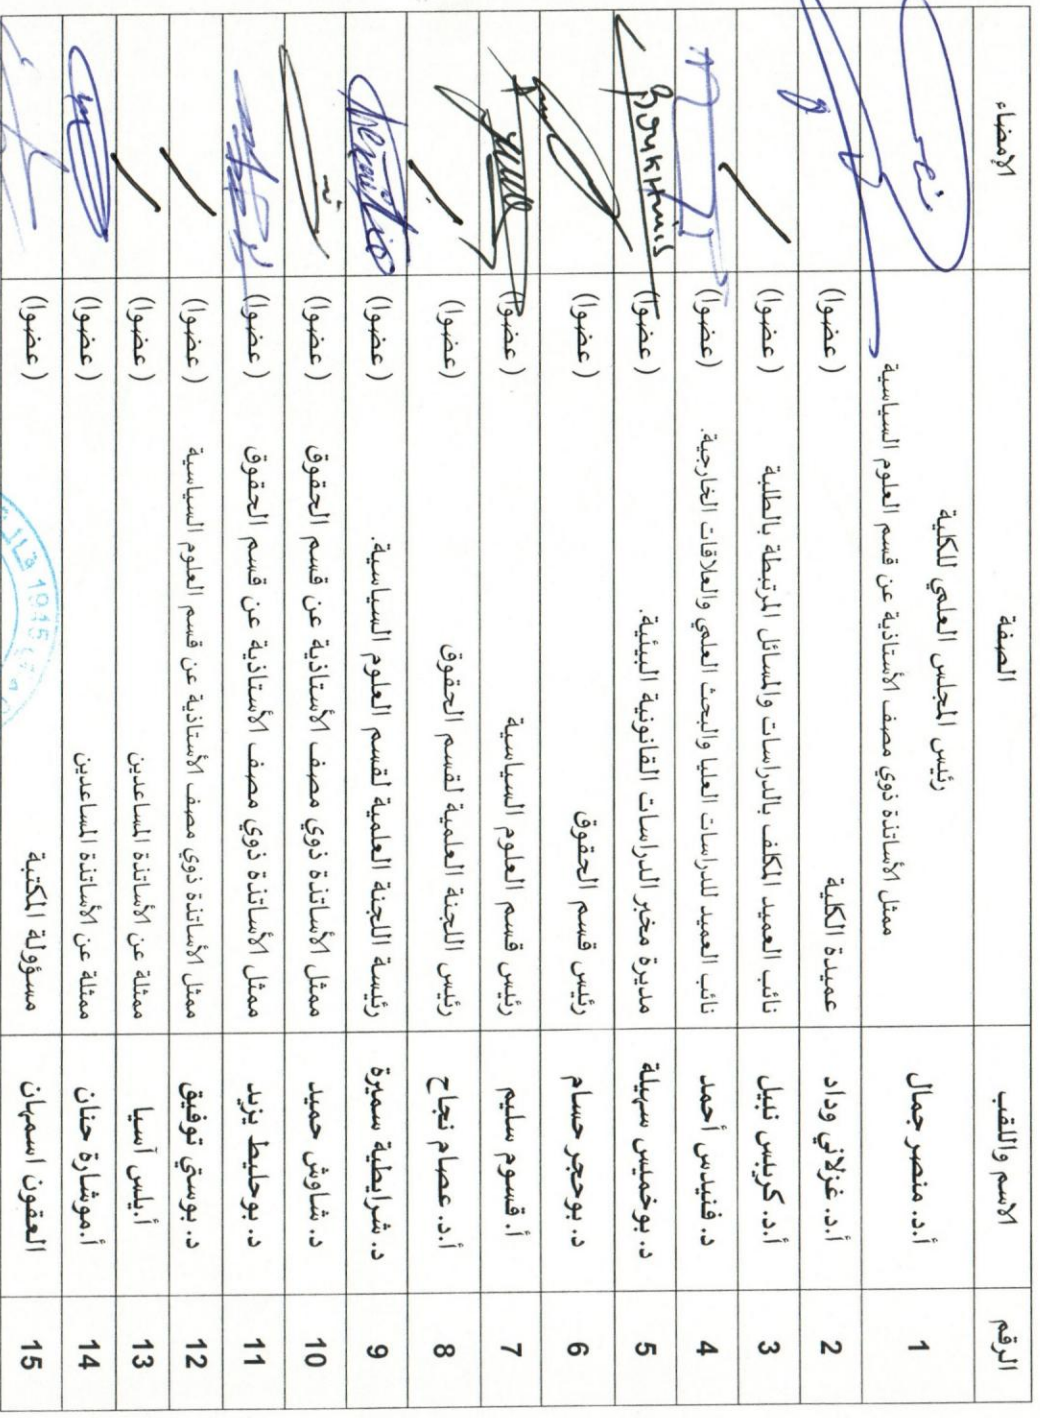 الرقم الاسم واللقب الصفة الإمضاء
1 أ.د. منصر جمال رئيس المجلس العلمي للكلية
ممثل الأساتذة ذوي مصف الأستاذية عن قسم العلوم السياسية
2 أ.د. غزلاني وداد عميدة الكلية (عضوا)
3 أ.د. كريبس نبيل نائب العميد المكلف بالدراسات والمسائل المرتبطة بالطلبة (عضوا)
4 د. فنيدس أحمد نائب العميد للدراسات العليا والبحث العلمي والعلاقات الخارجية. (عضوا)
5 د. بوخميس سهيلة مديرة مخبر الدراسات القانونية البيئية. (عضوا) Boukhmis
6 د. بوحجر حسام رئيس قسم الحقوق (عضوا)
7 أ. قسوم سليم رئيس قسم العلوم السياسية (عضوا)
8 أ.د. عصام نجاح رئيس اللجنة العلمية لقسم الحقوق (عضوا)
9 د. شرايطية سميرة رئيسة اللجنة العلمية لقسم العلوم السياسية. (عضوا)
10 د. شاوش حميد ممثل الأساتذة ذوي مصف الأستاذية عن قسم الحقوق (عضوا)
11 د. بوحليط يزيد ممثل الأساتذة ذوي مصف الأستاذية عن قسم الحقوق (عضوا)
12 د. بوستي توفيق ممثل الأساتذة ذوي مصف الأستاذية عن قسم العلوم السياسية (عضوا)
13 أ.يلس آسيا ممثلة عن الأساتذة المساعدين (عضوا)
14 أ.موشارة حنان ممثلة عن الأساتذة المساعدين (عضوا)
15 العقون اسمهان مسؤولة المكتبة (عضوا)
1945